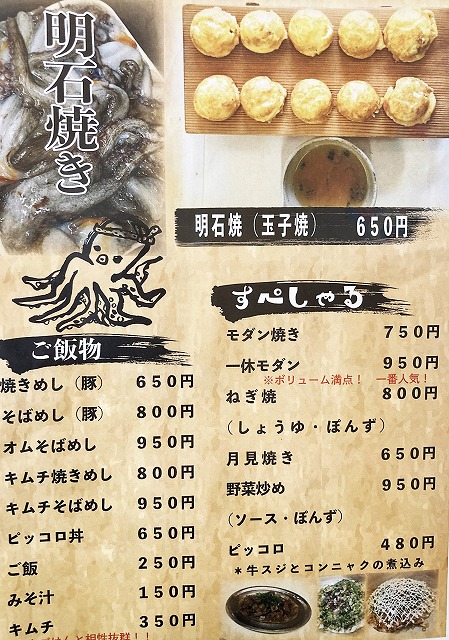 明石焼き
明石焼（玉子焼） 650円
ご飯物
焼きめし（豚） 650円
そばめし（豚） 800円
オムそばめし 950円
キムチ焼きめし 800円
キムチそばめし 950円
ピッコロ丼 650円
ご飯 250円
みそ汁 150円
キムチ 350円
と相性抜群！！
すぺしゃる
モダン焼き 750円
一休モダン 950円
※ボリューム満点！ 一番人気！
ねぎ焼 800円
（しょうゆ・ぽんず）
月見焼き 650円
野菜炒め 950円
（ソース・ぽんず）
ピッコロ 480円
＊牛スジとコンニャクの煮込み